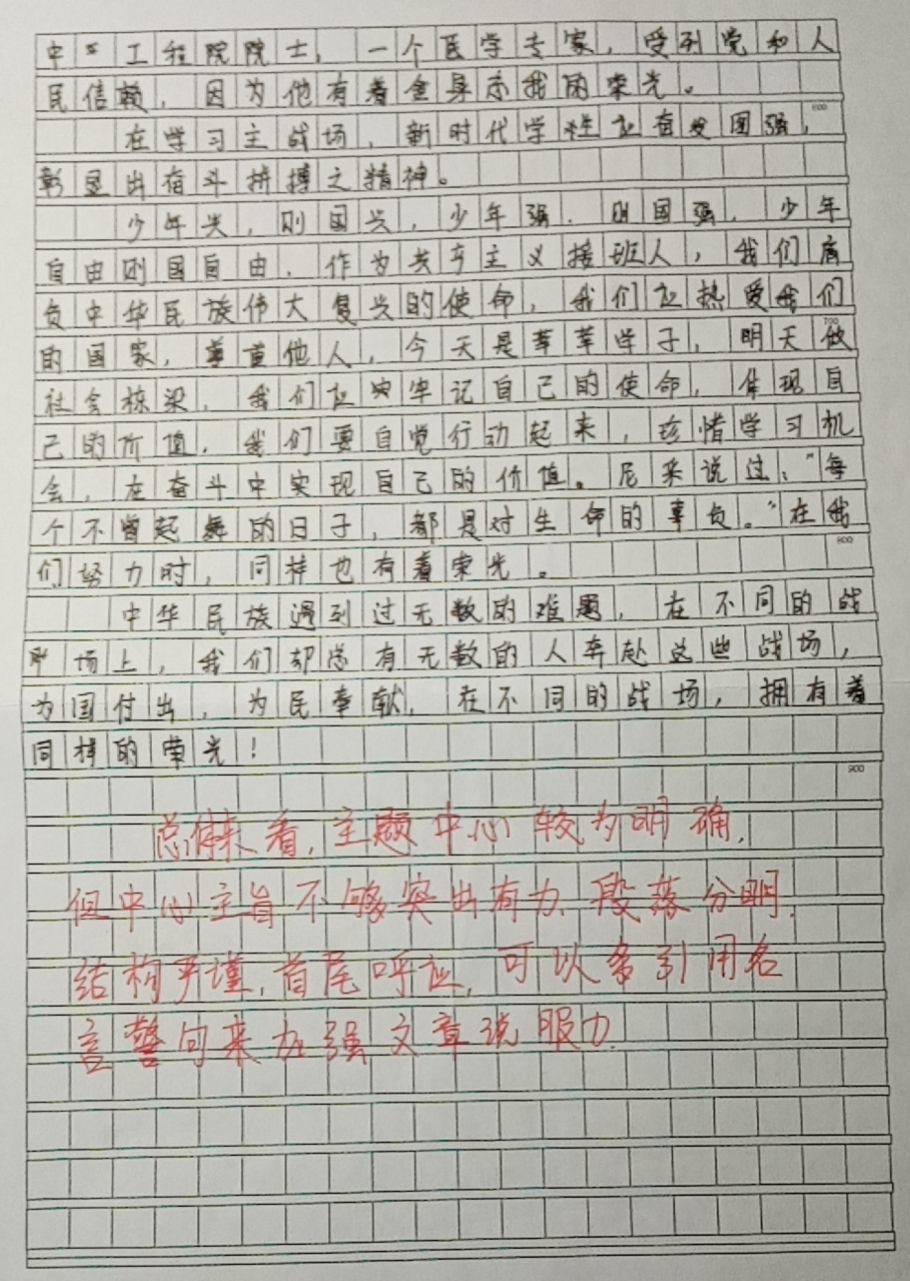 中工工程院院士，一个医学专家，受到党和人
民信赖，因为他有着舍身忘我的荣光。
在学习主战场，新时代学性应奋发图强，
600
彰显出奋斗拼搏之精神。
少年兴，则国兴，少年强，则国强，少年
自由则国自由，作为共产主义接班人，我们肩
负中华民族伟大复兴的使命，我们应热爱我们
的国家，尊重他人，今天是莘莘学子，明天做
700
社会栋梁，我们应牢记自己的使命，体现自
己的价值，我们要自觉行动起来，珍惜学习机
会，在奋斗中实现自己的价值。尼采说过：“每
个不曾起舞的日子，都是对生命的辜负。”在我
800
们努力时，同样也有着荣光。
中华民族遇到过无数的难题，在不同的战
场上，我们却总有无数的人奔赴这些战场，
为国付出，为民奉献，在不同的战场，拥有着
同样的荣光！
900
总体来看，主题中心较为明确，
但中心主旨不够突出有力、段落分明，
结构严谨，首尾呼应，可以多引用名
言警句来加强文章说服力.